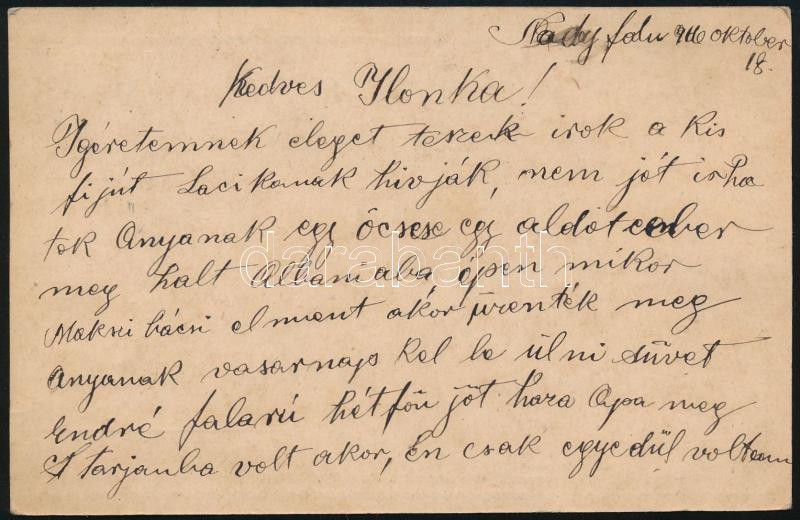 Nady falu 916 oktober
18.
Kedves Ilonka!
Igéretemnek eleget teszek irok a kis
fijút Lacikanak hivják, nem jót
tok Anyanak egy öcscse egy aldot ember
meg halt Albaniaba, épen mikor
bácsi elment akor üzenték meg
Anyanak vasarnap kel le ülni süvet
Endré falarú hétfőn jöt haza Apa meg
Tarjanba volt akor, Én csak egyedül voltam
darabanth